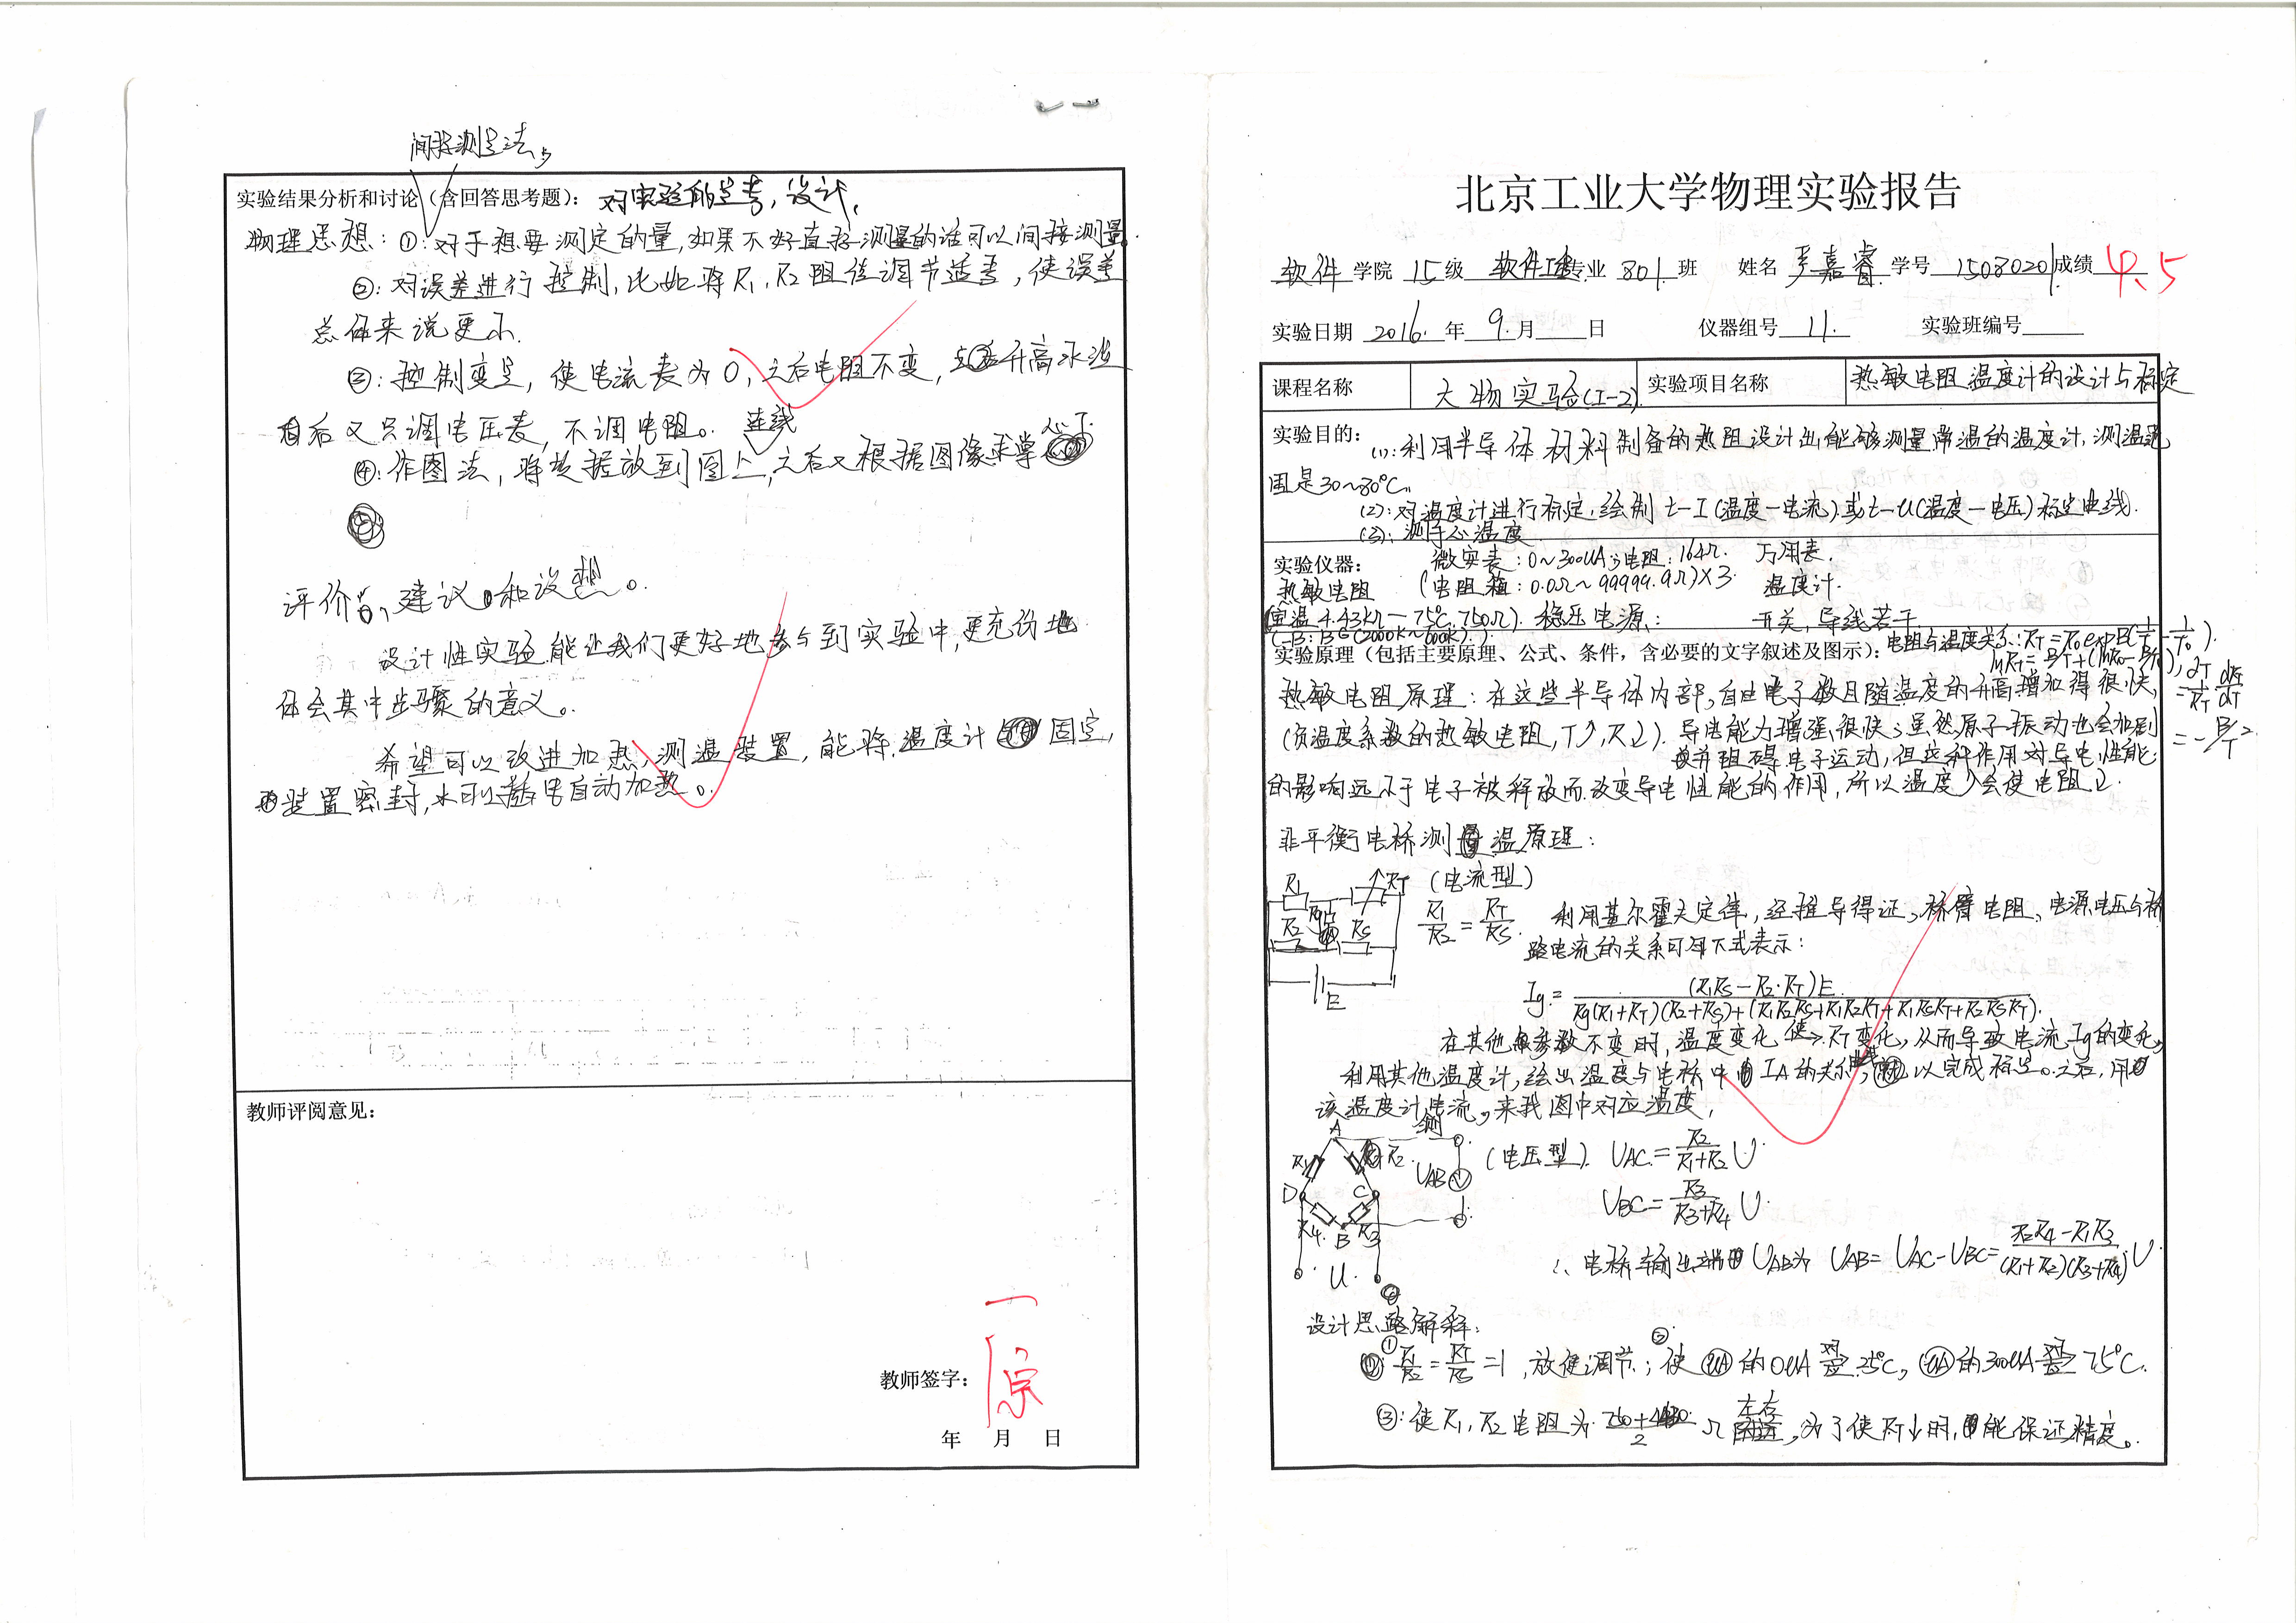 间接测量法,
实验结果分析和讨论(含回答思考题): 对实验的思考,设计,
物理思想:①:对于想要测定的量,如果不好直接测量的话可以间接测量.
②:对误差进行控制,比如将R1,R2阻值调节适当,使误差
总体来说更小.
③:控制变量,使电流表为0,之后电阻不变,升高水温
后又只调电压表,不调电阻。
连线
④:作图法,将数据放到图上,之后又根据图像来掌
心T.
评价,建议和设想。
设计性实验能让我们更好地参与到实验中,更充份地
体会其中步骤的意义。
希望可以改进加热,测温装置,能将温度计固定,
装置密封,水可以插电自动加热。
教师评阅意见:
教师签字:
年 月 日
北京工业大学物理实验报告
软件 学院 15 级 软件工程 专业 801 班 姓名 嘉睿 学号 15080201 成绩 4.5
实验日期 2016. 年 9. 月 日 仪器组号 11. 实验班编号
课程名称 大物实验(I-2) 实验项目名称 热敏电阻温度计的设计与标定
实验目的: (1):利用半导体材料制备的热阻设计出能够测量常温的温度计,测温范
围是30~80℃。
(2):对温度计进行标定,绘制t-I(温度-电流)或t-U(温度-电压)标定曲线.
(3):测手心温度
实验仪器: 微安表:0~300uA;电阻:164Ω. 万用表.
热敏电阻 (电阻箱:0.0Ω~99999.9Ω)×3. 温度计.
(室温4.43kΩ-75℃.750Ω). 稳压电源; 开关,导线若干.
实验原理(包括主要原理、公式、条件,含必要的文字叙述及图示): 电阻与温度关系:RT=R0expB(1/T-1/T0).
lnRT=B/T+(lnR0-B/T0), αT
=1/RT dRT/dT
=-B/T²
热敏电阻原理:在这些半导体内部,自由电子数目随温度的升高增加得很快,
(负温度系数的热敏电阻,T↑,R↓).导电能力增强很快;虽然原子振动也会加剧
并阻碍电子运动,但这种作用对导电性能
的影响远小于电子被释放而改变导电性能的作用,所以温度↑会使电阻↓.
非平衡电桥测温原理:
(电流型)
R1 RT
R2 Rg RS
E
R1/R2=RT/RS. 利用基尔霍夫定律,经推导得证,桥臂电阻、电源电压与桥
路电流的关系可用下式表示:
Ig=(R1RS-R2·RT)E/Rg(R1+RT)(R2+RS)+(R1R2RS+R1R2RT+R1RSRT+R2RSRT).
在其他参数不变时,温度变化使RT变化,从而导致电流Ig的变化,
利用其他温度计,绘出温度与电桥中IA的关系曲线,以完成标定。之后,用
该温度计电流,来找图中对应温度,
测
A R1 R2 UAB V D C R4 B R3 U.
(电压型) UAC=R2/(R1+R2) U.
UBC=R3/(R3+R4) U.
∴电桥输出端UAB为 UAB=UAC-UBC=(R2R4-R1R3)/(R1+R2)(R3+R4)·U.
设计思路解释:
① R1/R2=RT/RS=1,放便调节; ②使uA的0uA是25℃,uA的300uA是75℃.
③:使R1,R2电阻为(750+4430)/2 Ω左右,为了使RT↓时,能保证精度。